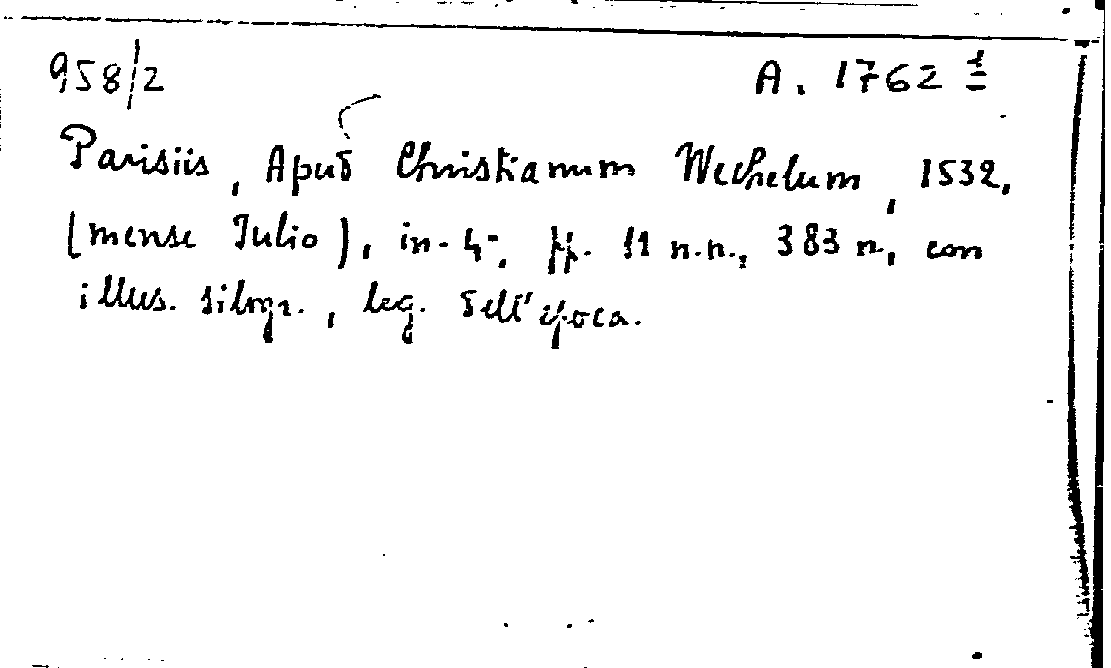 958/2 A. 1762 1
Parisiis, Apud Christianum Wechelum, 1532,
(mense Iulio), in-4°, ff. 11 n.n., 383 n., con
illus. silogr., leg. dell'epoca.